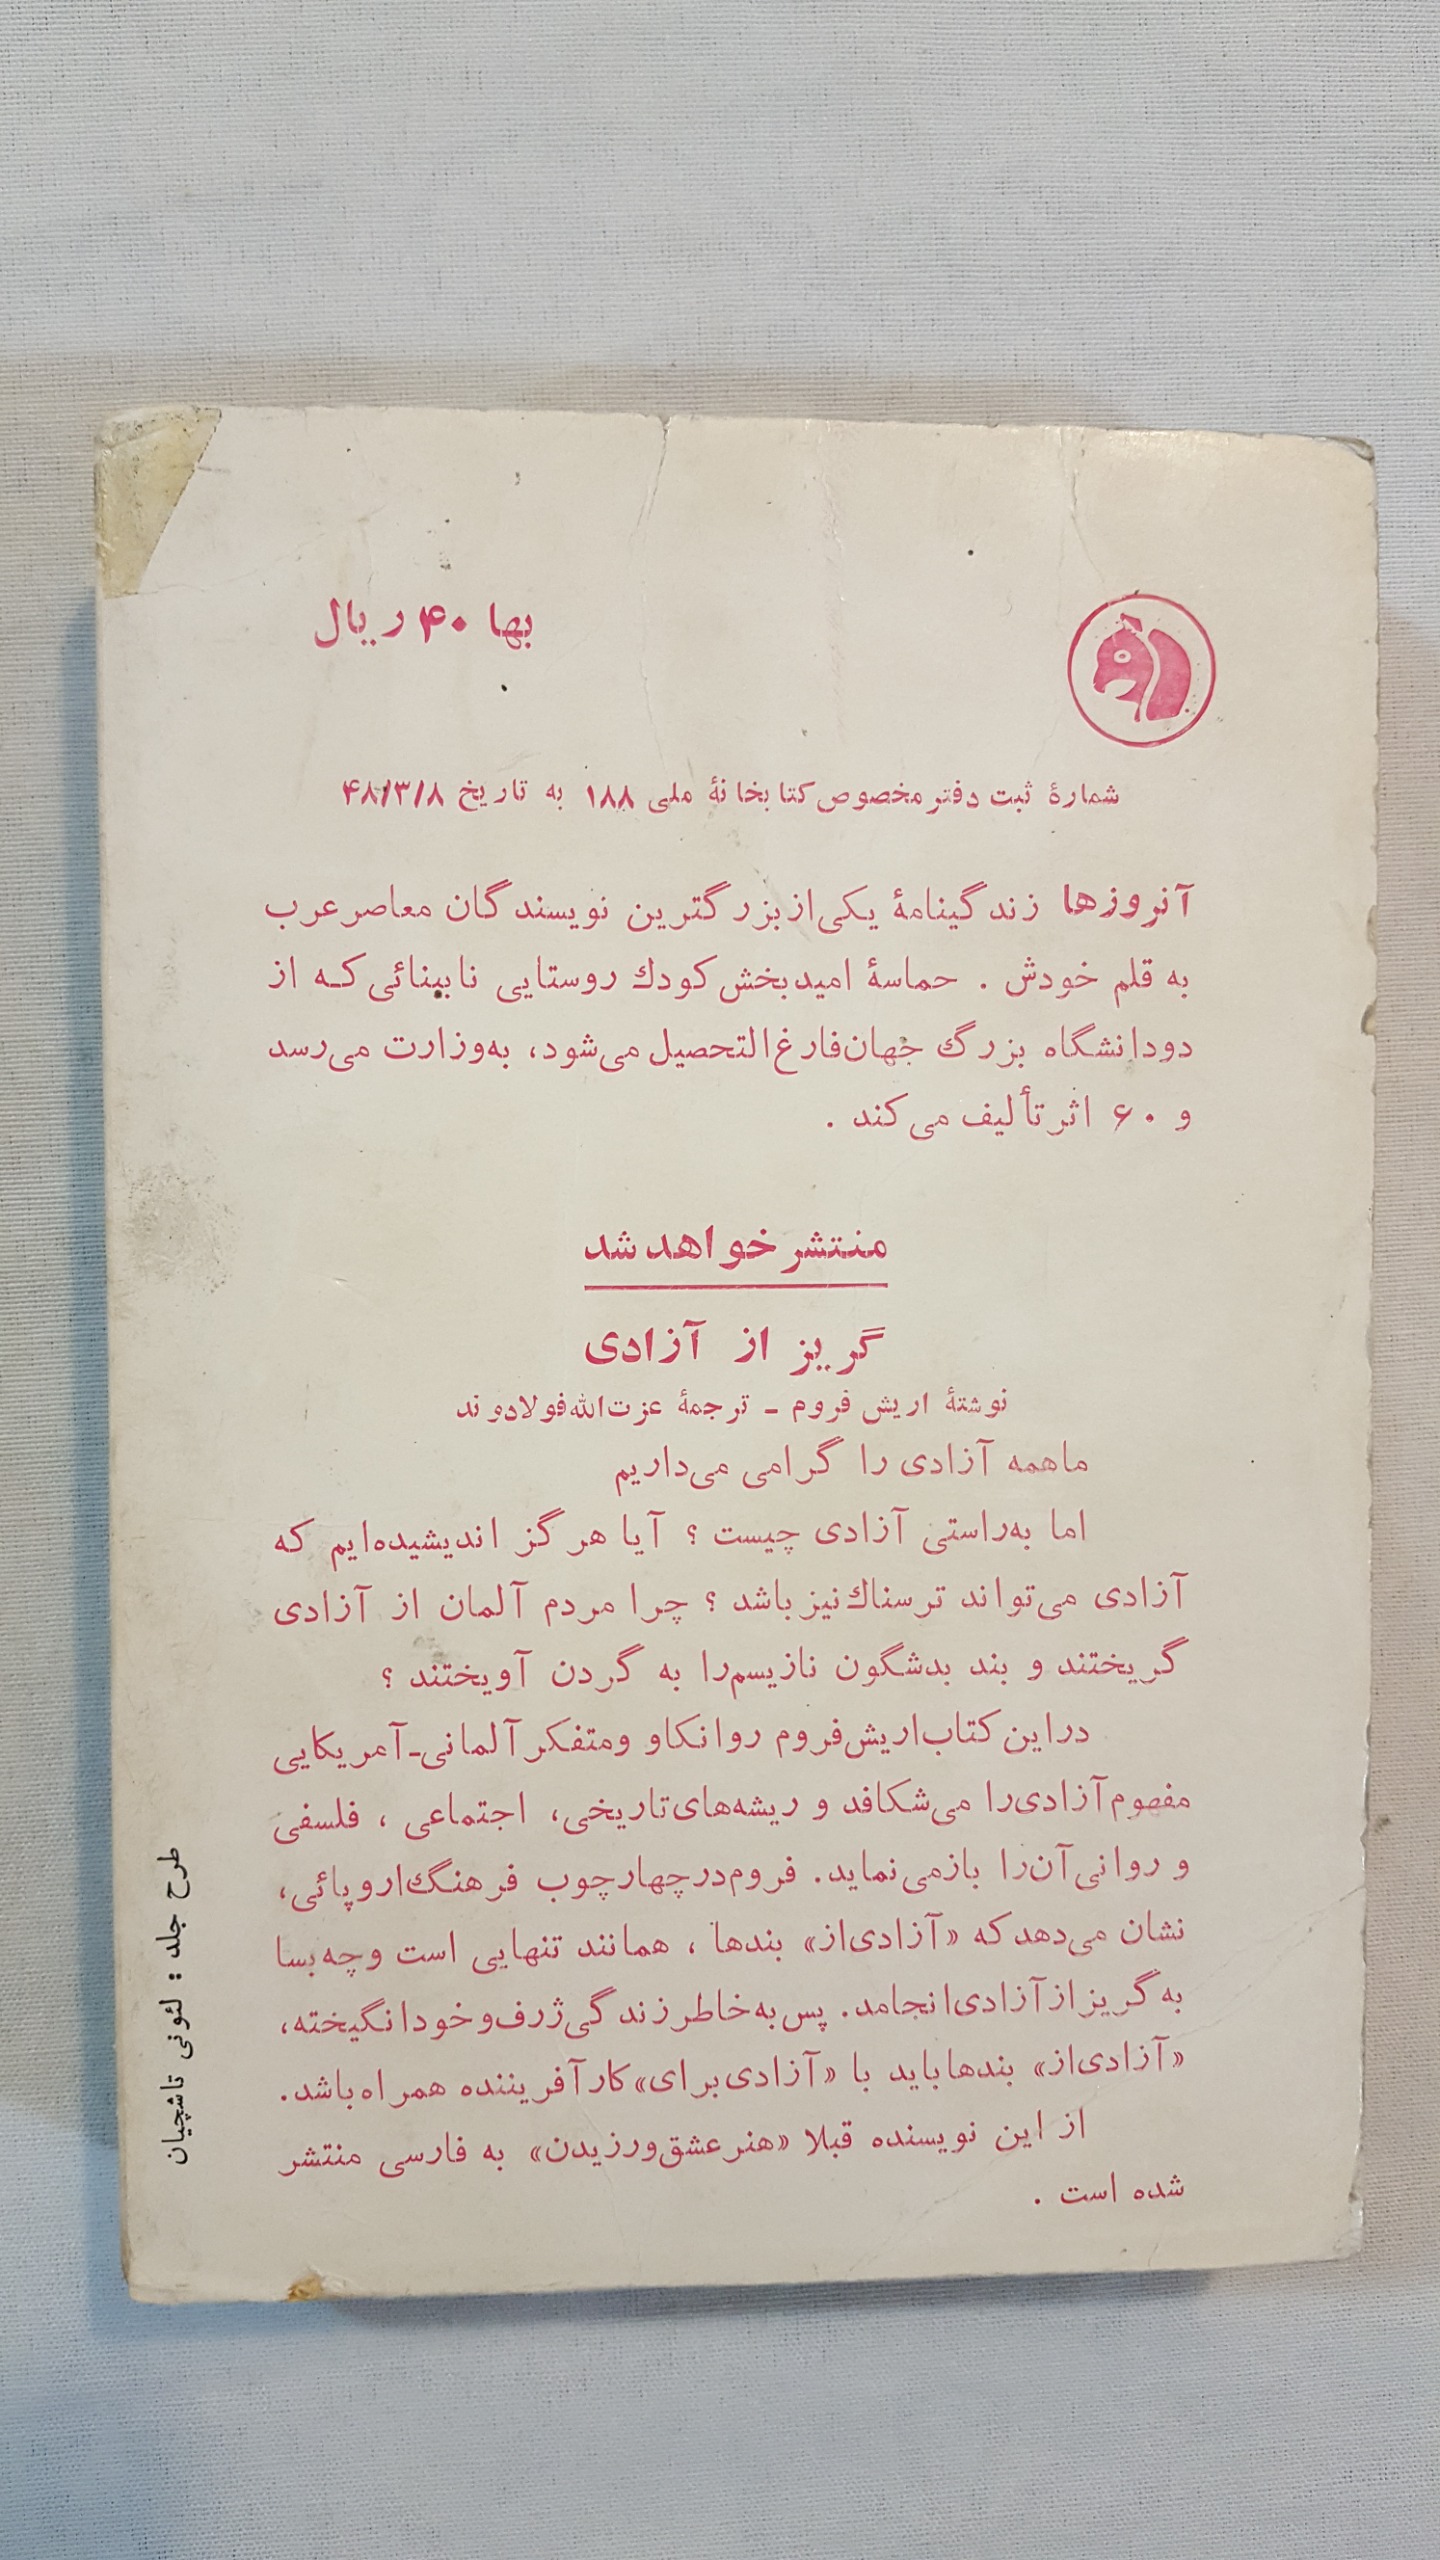 بها ۴۰ ریال
شمارهٔ ثبت دفتر مخصوص کتابخانهٔ ملی ۱۸۸ به تاریخ ۴۸/۳/۸
آنروزها زندگینامهٔ یکی از بزرگترین نویسندگان معاصر عرب
به قلم خودش . حماسهٔ امیدبخش کودك روستایی نابینائی که از
دودانشگاه بزرگ جهان فارغ‌التحصیل می‌شود، به‌وزارت می‌رسد
و ۶۰ اثر تألیف می‌کند .
منتشر خواهد شد
گریز از آزادی
نوشتهٔ اریش فروم ـ ترجمهٔ عزت‌الله فولادوند
ماهمه آزادی را گرامی می‌داریم
اما به‌راستی آزادی چیست ؟ آیا هرگز اندیشیده‌ایم که
آزادی می‌تواند ترسناك نیز باشد ؟ چرا مردم آلمان از آزادی
گریختند و بند بدشگون نازیسم را به گردن آویختند ؟
دراین کتاب اریش فروم روانکاو ومتفکر آلمانی‌ـ‌آمریکایی
مفهوم آزادی را می‌شکافد و ریشه‌های تاریخی، اجتماعی ، فلسفی
و روانی آن را بازمی‌نماید. فروم در چهارچوب فرهنگ اروپائی،
نشان می‌دهد که «آزادی از» بندها ، همانند تنهایی است و چه بسا
به گریز از آزادی انجامد. پس به خاطر زندگی ژرف و خودانگیخته،
«آزادی از» بندها باید با «آزادی برای» کار آفریننده همراه باشد.
از این نویسنده قبلا «هنر عشق ورزیدن» به فارسی منتشر
شده است .
طرح جلد : لئونی تاشچیان